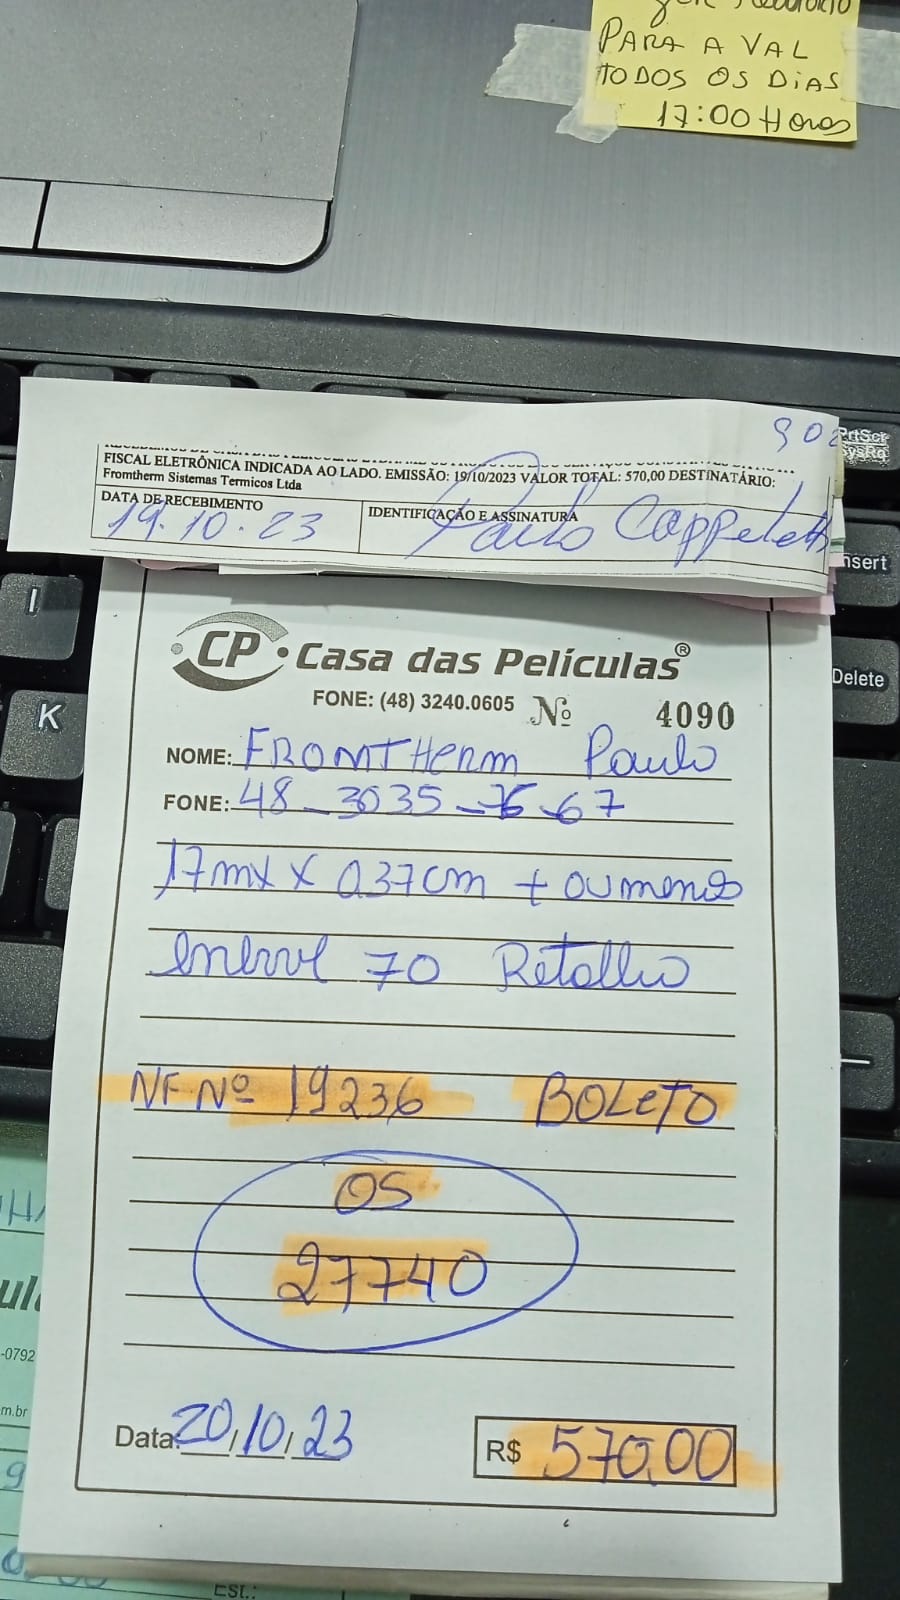 PARA A VAL
TODOS OS DIAS
17:00 Horas
902
FISCAL ELETRÔNICA INDICADA AO LADO. EMISSÃO: 19/10/2023 VALOR TOTAL: 570,00 DESTINATÁRIO:
Fromtherm Sistemas Termicos Ltda
DATA DE RECEBIMENTO
IDENTIFICAÇÃO E ASSINATURA
19.10.23
Paulo Cappeletti
CP Casa das Películas®
FONE: (48) 3240.0605 Nº 4090
NOME: FROMTHERM Paulo
FONE: 48-3035-76-67
17mx x 0.37cm + ou menos
70 Retalho
NF Nº 19236 BOLETO
OS
27740
Data: 20/10/23
R$ 570,00
PrtScr
SysRq
nsert
Delete
I
K
-0792
m.br
EST.: